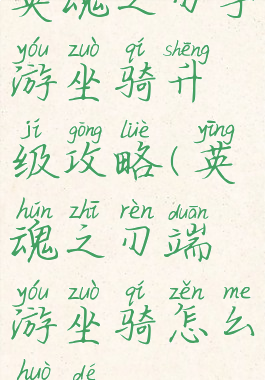 英魂之刃手
yóu zuò qí shēng
游坐骑升
jí gōng lüè yīng
级攻略(英
hún zhī rèn duān
魂之刃端
yóu zuò qí zěn me
游坐骑怎么
huò dé